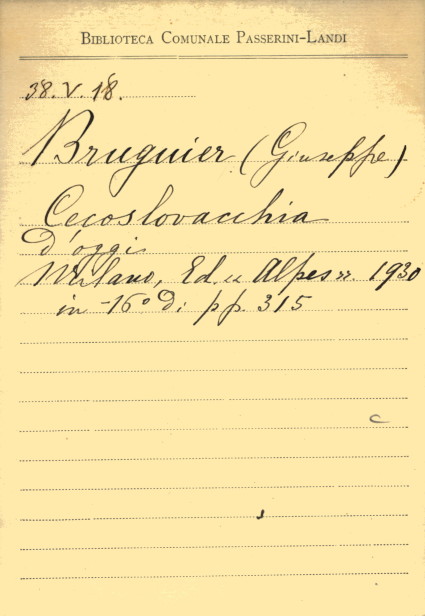 BIBLIOTECA COMUNALE PASSERINI-LANDI
38. V. 18.
Bruguier (Giuseppe)
Cecoslovacchia
d'oggi
Milano, Ed. "Alpes" 1930
in -16° di pp. 315